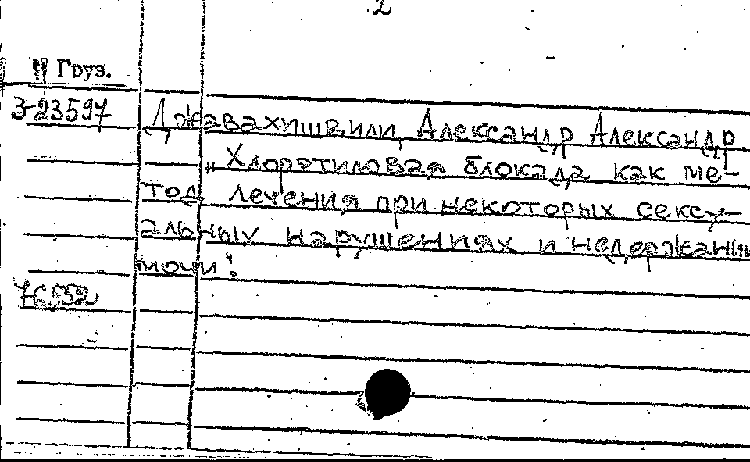 2
Груз.
3-23597 Джавахишвили, Александр Александр
„Хлорэтиловая блокада как ме-
тод лечения при некоторых сексу-
альных нарушениях и недержании
мочи".
76552